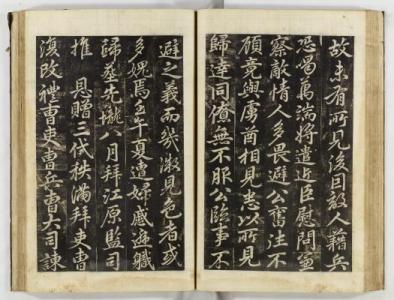 故未有所見後因敵人藉兵
恐喝萬端將遣近臣慰問宣
察敵情人多畏避公奮往不
顧竟與虜酋相見悉以所見
歸達同儕無不服公臨事不
避之義而幾微見色者或
多媿焉壬午夏遭婦戚遞職
歸葬先壠八月拜江原監司
推 恩贈三代秩滿拜吏曹
復改禮曹吏曹兵曹大司諫